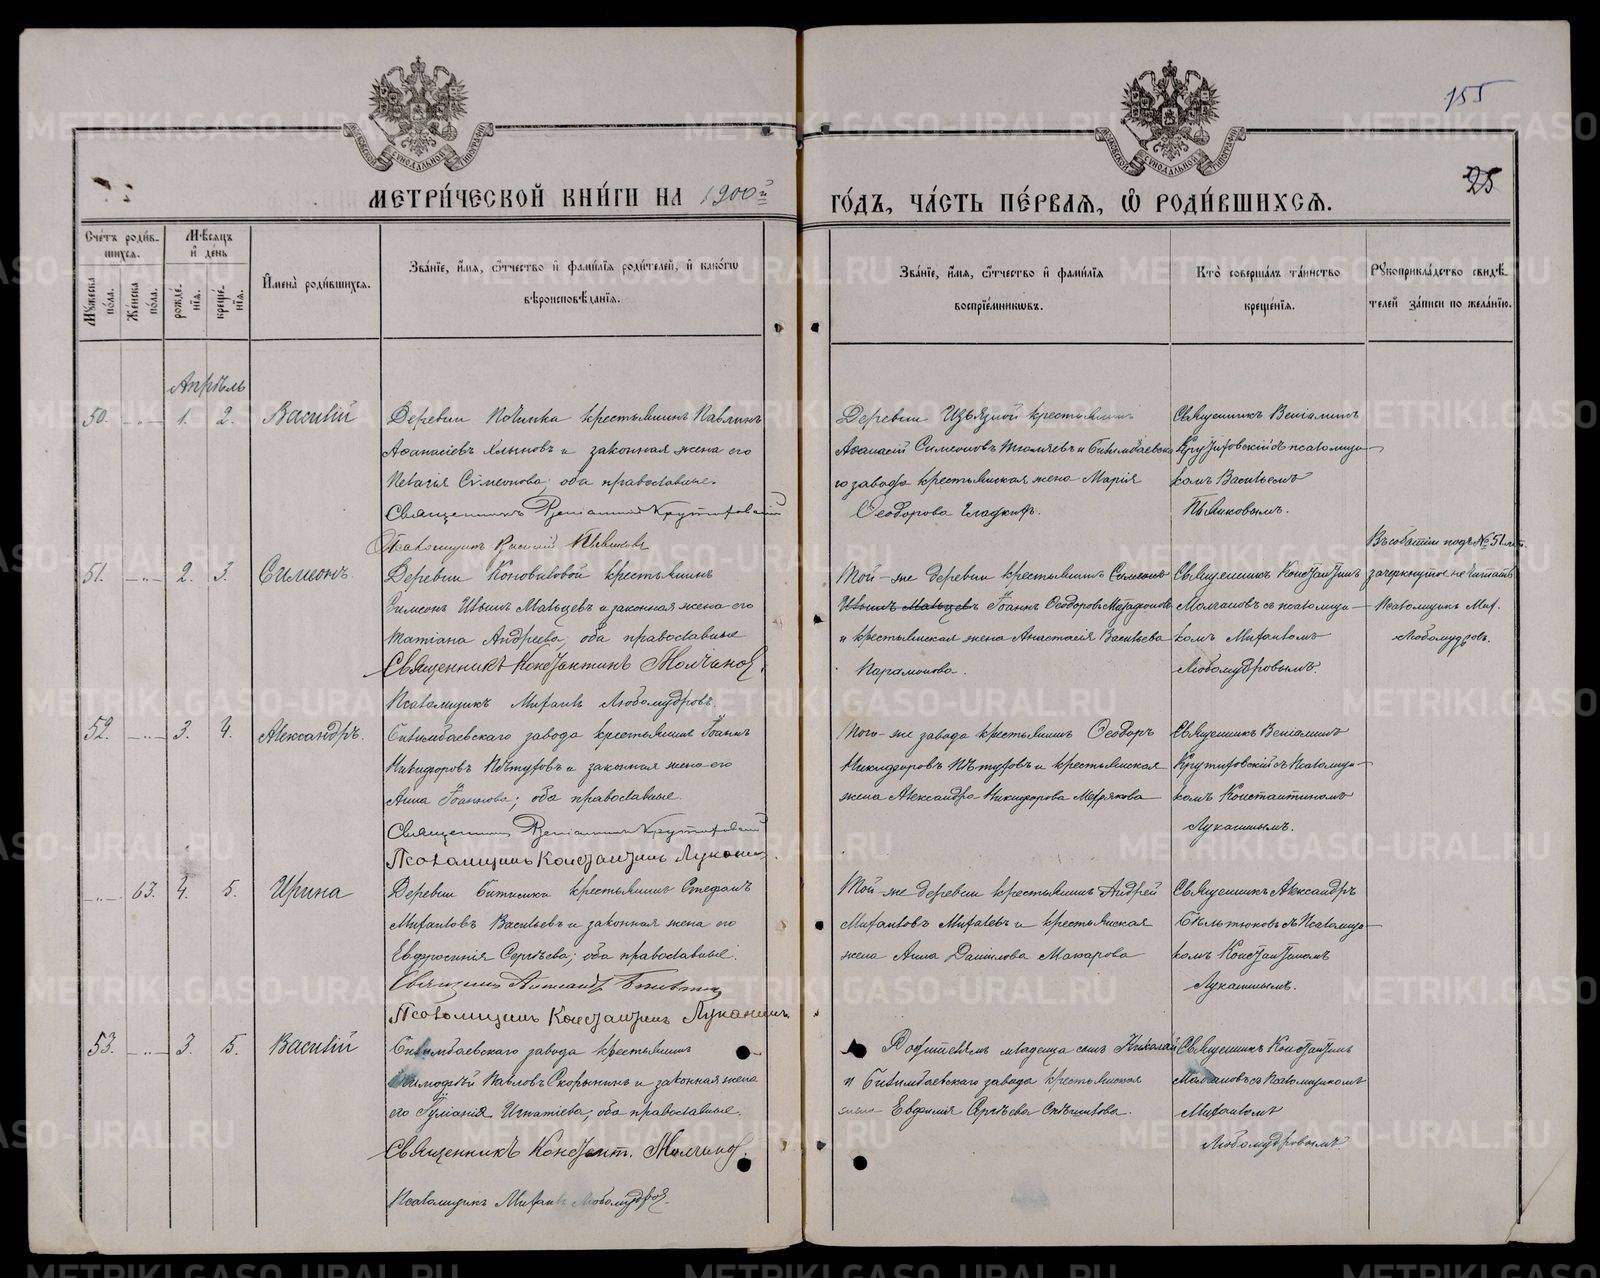 155
25
МЕТРИ́ЧЕСКОЙ КНИ́ГИ НА 1900й
ГО́ДЪ, ЧА́СТЬ ПЕ́РВАЯ, Ѡ РОДИ́ВШИХСЯ.
Сче́тъ роди́вшихся.
Мѣ́сяцъ и́ де́нь
Му́жеска по́ла.
Же́нска по́ла.
рожде́нїя.
креще́нїя.
И҆мена̀ роди́вшихся.
Зва́нїе, и҆́мя, ѻ҆́тчество и҆ фами́лїя роди́телей, и҆ како́гѡ
вѣроисповѣ́данїя.
Зва́нїе, и҆́мя, ѻ҆́тчество и҆ фами́лїя
воспрїе́мникѡвъ.
Кто̀ соверша́лъ та́инство
креще́нїя.
Рꙋкоприкла́дство свидѣ́телей за́писи по жела́нїю.
Апрѣль
50. — „ — 1. 2. Василій
Деревни Починка крестьянинъ Павлинъ
Аѳанасіевъ и законная жена его
Пелагія Сѵмеонова; оба православные.
Священникъ Веніаминъ Крутиховскій
Псаломщикъ Василій Пьянковъ
Деревни крестьянинъ
Аѳанасій Симеоновъ и Билимбаевска
го завода крестьянская жена Марія
Ѳеодорова Гладкихъ.
Священникъ Веніаминъ
Крутиховскій съ псаломщи-
комъ Василіемъ
Пьянковымъ.
51. — „ — 2. 3. Симеонъ
Деревни Коноваловой крестьянинъ
Симеонъ Мальцевъ и законная жена его
Татіана Андреева, оба православные
Священникъ Константинъ Молчановъ.
Псаломщикъ Михаилъ Любомудровъ.
Той-же деревни крестьянинъ Симеонъ
Мальцевъ Іоаннъ Ѳеодоровъ
и крестьянская жена Анастасія Васильева
Парамонова.
Священникъ Константинъ
Молчановъ съ псаломщи-
комъ Михаиломъ
Любомудровымъ.
Въ событіи подъ № 51
зачеркнутое не читать
Псаломщикъ Мих.
Любомудровъ.
52. — „ — 3. 4. Александръ.
Билимбаевскаго завода крестьянинъ Іоаннъ
Никифоровъ Пѣтуховъ и законная жена его
Анна Іоаннова; оба православные.
Священникъ Веніаминъ Крутиховскій
Псаломщикъ Константинъ Луканинъ.
Того-же завода крестьянинъ Ѳеодоръ
Никифоровъ Пѣтуховъ и крестьянская
жена Александра Никифорова
Священникъ Веніаминъ
Крутиховскій съ Псаломщи-
комъ Константиномъ
Луканинымъ.
— „ — 63. 4. 5. Ирина
Деревни Битимки крестьянинъ Стефанъ
Михаиловъ Васильевъ и законная жена его
Евфросинія Сергѣева; оба православные.
Священникъ Александръ Бѣльтюковъ
Псаломщикъ Константинъ Луканинъ.
Той-же деревни крестьянинъ Андрей
Михаиловъ Михалевъ и крестьянская
жена Анна Данилова Макарова
Священникъ Александръ
Бѣльтюковъ съ Псаломщи-
комъ Константиномъ
Луканинымъ.
53. — „ — 3. 5. Василій
Билимбаевскаго завода крестьянинъ
Тимоѳей Павловъ Скорынинъ и законная жена
его Іуліанія Игнатіева, оба православные.
Священникъ Констант. Молчановъ.
Псаломщикъ Михаилъ Любомудровъ.
Родителемъ младенца сынъ Николай
и Билимбаевскаго завода крестьянская
жена Евфимія
Священникъ Константинъ
Молчановъ съ Псаломщикомъ
Михаиломъ
Любомудровымъ.
METRIKI.GASO-URAL.RU